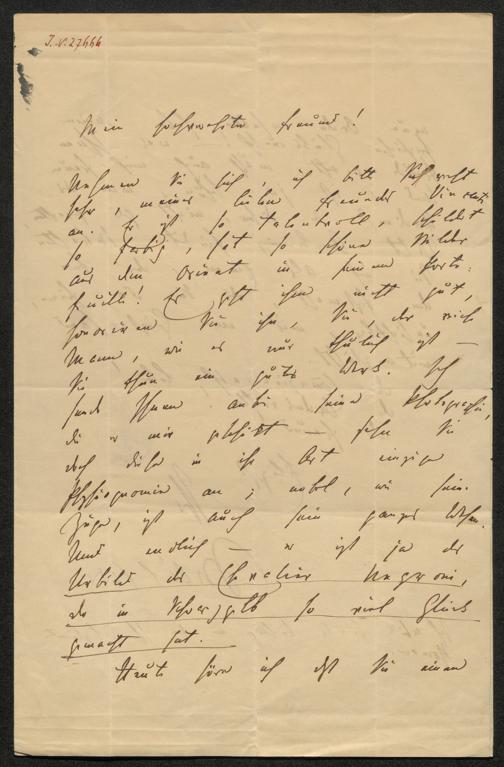 J.N.27444
Mein hochverehrter Freund!
Nehmen Sie sich, ich bitte Sie recht
sehr, meines lieben Freundes
an. Er ist so talentvoll, schildert
so farbig, hat so schöne Bilder
aus dem Orient in seinem Porte-
feuille! Er geht ihm nicht gut,
honoriren Sie ihn, Sie, der reich
Mann, wie es nur thunlich ist —
Sie thun ein gutes Werk. Ich
sende Ihnen anbei seine Photographie,
die er mir geschickt — sehen Sie
doch diese in ihr Art einzige
Physiognomie an; nobel, wie seine
Züge, ist auch sein ganzes Wesen.
Und endlich — er ist ja das
Urbild des Chevalier Ungaroni,
der in Schwarzgelb so viel Glück
gemacht hat.
Heute höre ich daß Sie einen